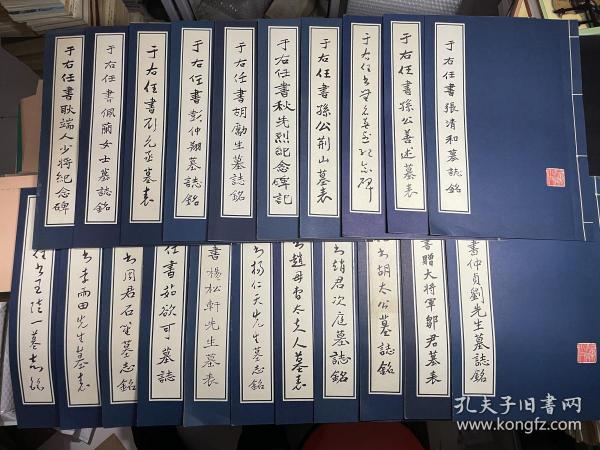 于右任書耿端人少將紀念碑
于右任書佩蘭女士墓誌銘
于右任書劉允丞墓表
于右任書彭仲翔墓誌銘
于右任書胡勵生墓誌銘
于右任書秋先烈紀念碑記
于右任書孫公荊山墓表
于右任书無名英雄紀念碑
于右任書孫公善述墓表
于右任書張清和墓誌銘
任书王陸一墓志銘
书李雨田先生墓表
书周君石笙墓志銘
任書茹欲可墓誌
書楊松軒先生墓表
书楊仁天先生墓志銘
书趙母曹太夫人墓表
书趙君次庭墓誌銘
书胡太公墓誌銘
書贈大將軍鄒君墓表
書仲貞劉先生墓誌銘
孔夫子旧書网
www.kongfz.com